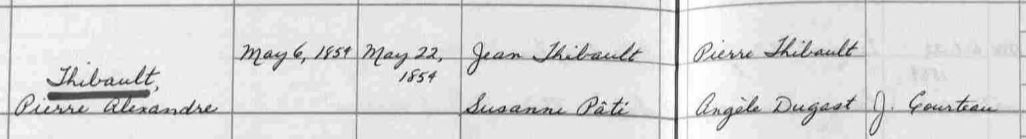 May 6, 1854 May 22, Jean Thibault Pierre Thibault
Thibault, 1854
Pierre Alexandre Susanne Pâti Angèle Dugast J. Gourteau